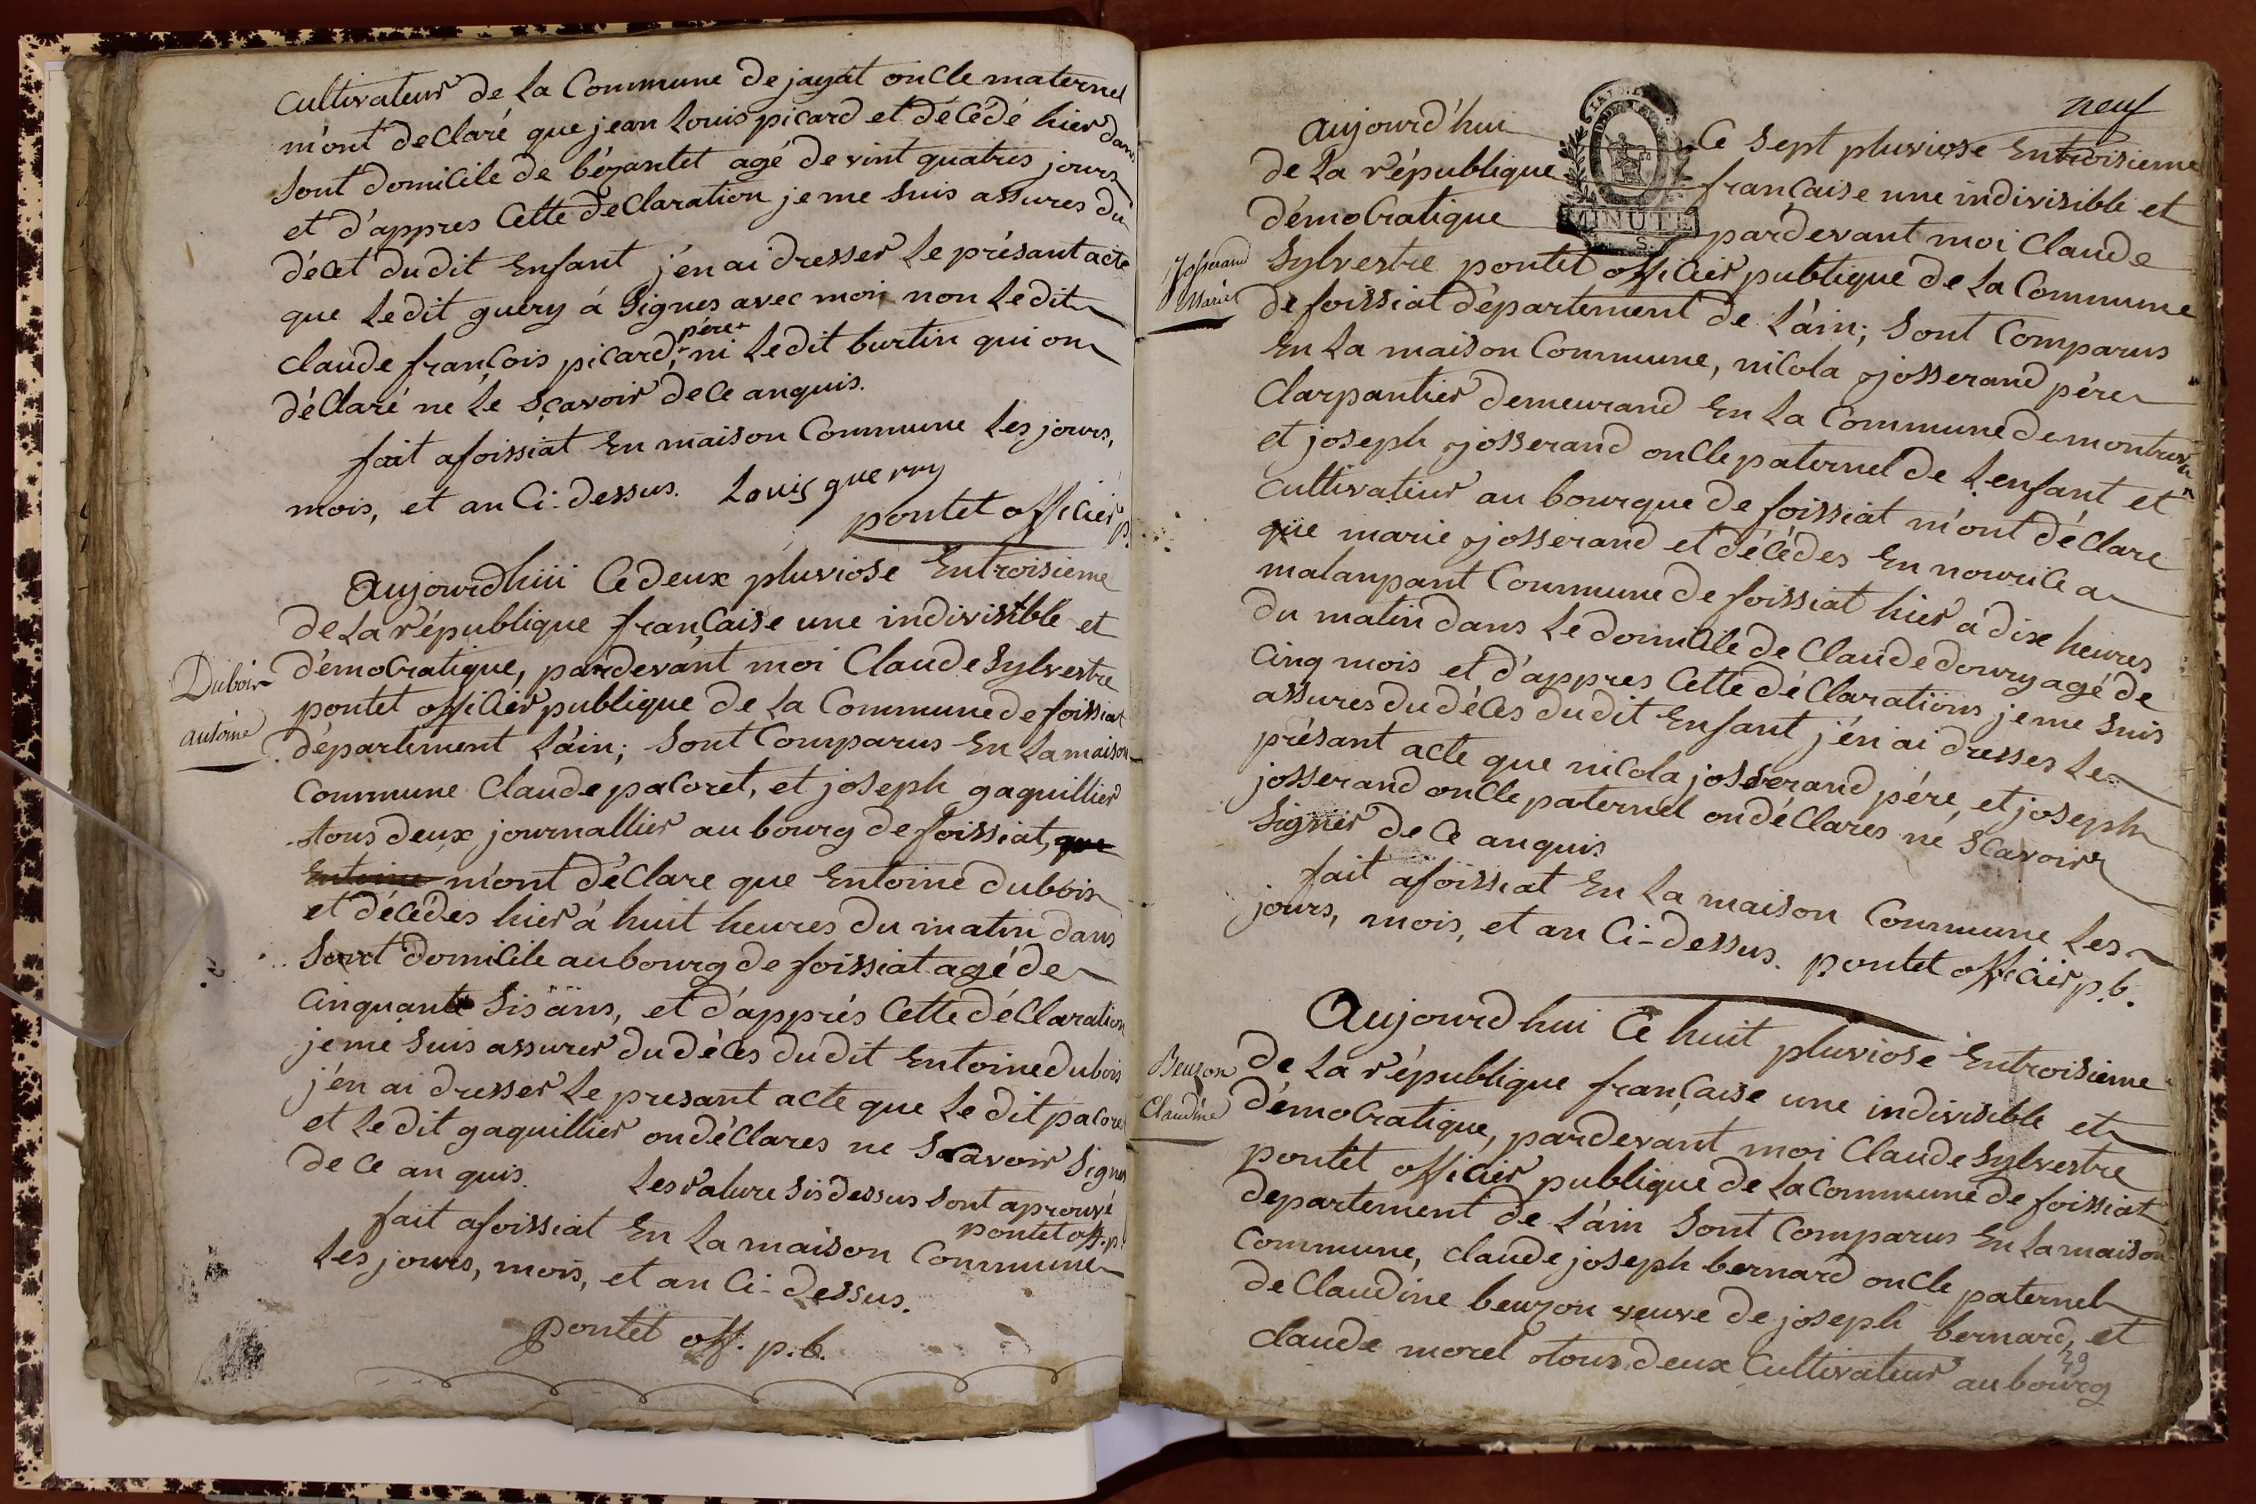 Cultivateur de La Commune de jayat oncle maternel
m'ont declaré que jean Louis picard et décédé hier dans
sont domicile de bézantet agé de vint quatres jours
et d'appres Cette declaration je me suis assures du
décet du dit Enfant j'en ai dresser Le présant acte
que Le dit guery à Signes avec moi non Le dit
Claude françois picard, père ni Le dit burtin qui on
déClaré ne Le sçavoir de Ce anquis.
fait afoissiat En maison Commune Les jours,
mois, et an Ci-dessus. Louis guerry
pontet officier p.
Aujourdhui Ce deux pluviose Entroisieme
de La république française une indivisible et
démoCratique, pardevant moi Claude Sylvestre
Dubois
antoine
pontet officier publique de La Commune de foissiat
département L'ain; Sont Comparus En La maison
Commune Claude paCoret, et joseph gaquillier
tous deux journallier au bourg de foissiat, que
Entoine m'ont déClare que Entoine dubois
et décédes hier à huit heures du matin dans
Sont domicile au bourg de foissiat agé de
Cinquante Sis ans, et d'apprés Cette déClaration
je me Suis assurer du décès du dit Entoine dubois
j'en ai dresser Le presant acte que Le dit paCoret
et Le dit gaquillier on déClares ne Scavoir Signer
de Ce anquis. Les rature Sis dessus Sont aprouvé
pontet off. p.
fait afoissiat En La maison Commune
Les jours, mois, et an Ci-dessus.
pontet off. p.b.
neuf
Aujourd'hui Ce Sept pluviose Entroisieme
de La république française une indivisible et
démoCratique pardevant moi Claude
MINUTE
Josserand
Marie
Sylvestre pontet officier publique de La Commune
de foissiat département de L'ain; Sont Comparus
En La maison Commune, niCola josserand père
Charpantier demeurand En La Commune de montrevel
et joseph josserand oncle paternel de L'enfant et
Cultivateur au bourgue de foissiat m'ont déClare
que marie josserand et décédes En nourice a
malanpant Commune de foissiat hier à dix heures
du matin dans Le domicile de Claude doury agé de
Cinq mois et d'appres Cette déClarations je me Suis
assures du décès du dit Enfant j'en ai dresses Le
présant acte que niCola josserand pére, et joseph
josserand oncle paternel on déClares ne Scavoir
Signer de Ce anquis
fait afoissiat En La maison Commune Les
jours, mois, et an Ci-dessus. pontet officier p.b.
Aujourdhui Ce huit pluviose Entroisieme
Beuzon
Claudine
de La république française une indivisible et
démoCratique, pardevant moi Claude Sylvestre
pontet officier publique de La Commune de foissiat
departement de L'ain Sont Comparus En La maison
Commune, Claude joseph bernard oncle paternel
de Claudine beuzon veuve de joseph bernard, et
Claude morel tous deux Cultivateur au bourg
29